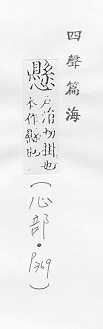 四聲篇海
懸
戶涓切掛也
本作縣
(心部·P369)